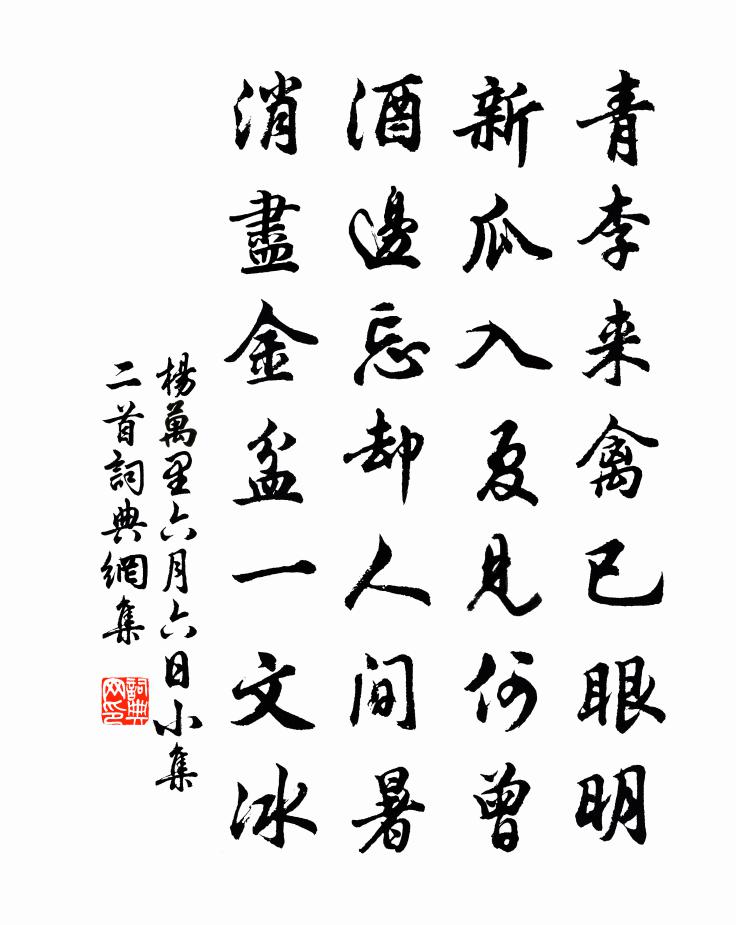 青李来禽已眼明
新瓜入夏見何曾
酒邊忘却人間暑
消盡金盆一文冰
楊萬里六月六日小集
二首詞典網集
詞典
网印